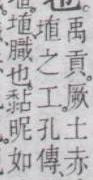 禹貢厥土赤
埴之工孔傳
埴膱也黏昵如